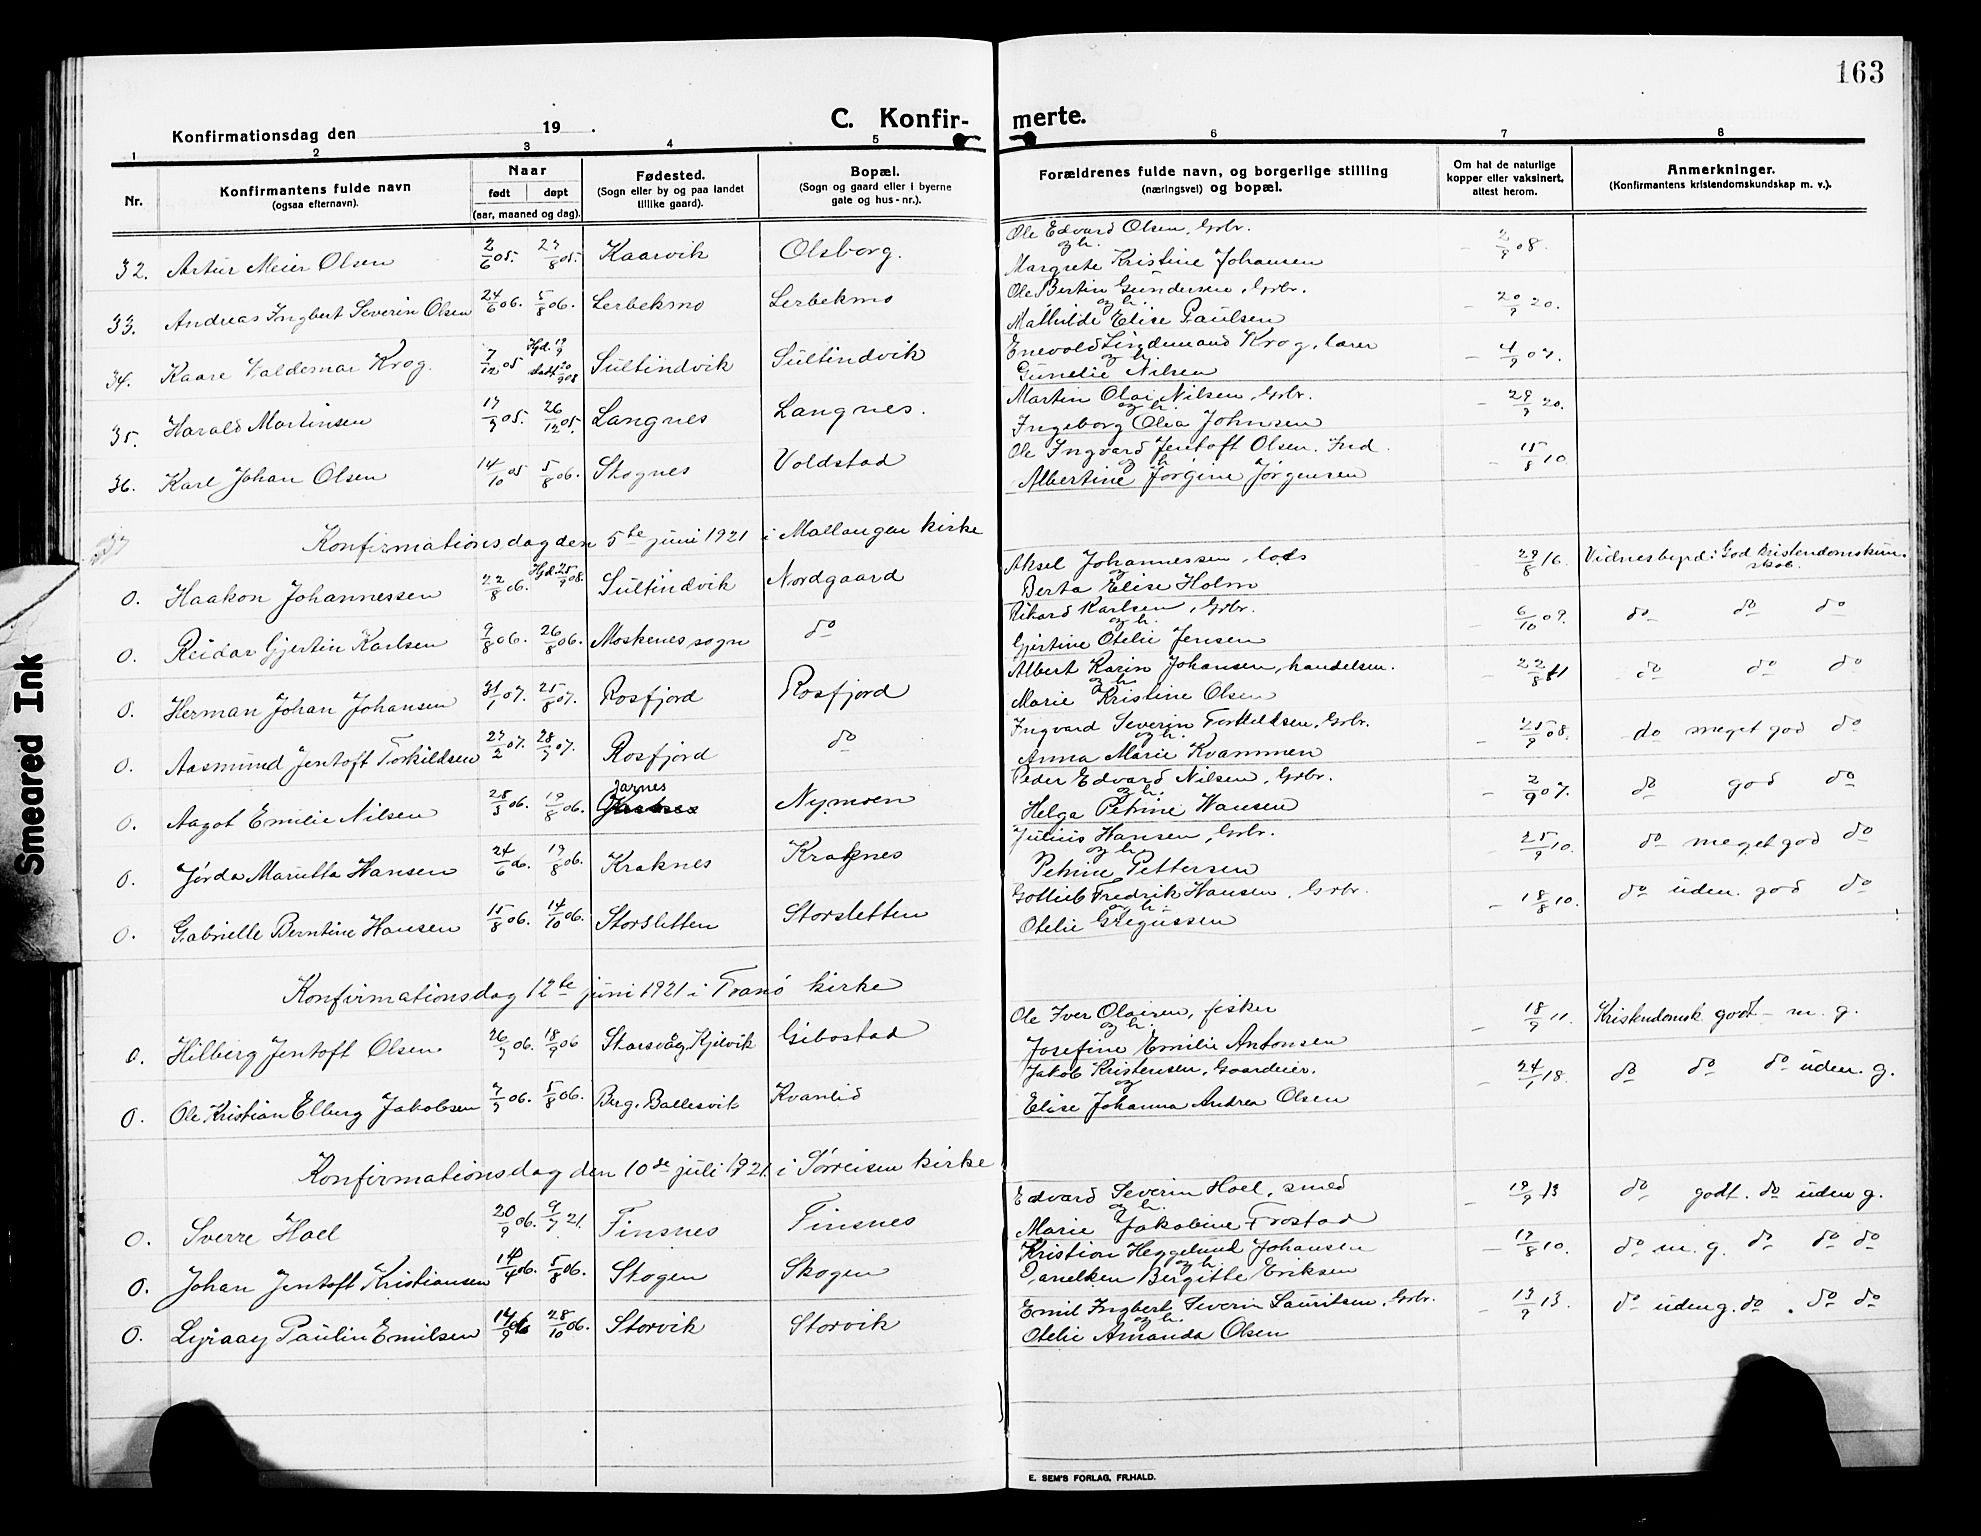 163
C. Konfir- merte.
Konfirmationsdag den 19 .
1 2 3 4 5 6 7 8
Nr.
Konfirmantens fulde navn
(ogsaa efternavn).
Naar
født døpt
(aar, maaned og dag).
Fødested.
(Sogn eller by og paa landet
tillike gaard).
Bopæl.
(Sogn og gaard eller i byerne
gate og hus-nr.).
Forældrenes fulde navn, og borgerlige stilling
(næringsvei) og bopæl.
Om hat de naturlige
kopper eller vaksinert,
attest herom.
Anmerkninger.
(Konfirmantens kristendomskundskap m. v.).
Ole Edvard Olsen, Grbr.
32. Artur Meier Olsen 2/6 05. 27/8 05. Kaarvik Olsborg. og h. – 2/9 08.
Margrete Kristine Johansen
Ole Bertin Gundersen, Grbr.
33. Andreas Ingbert Severin Olsen 24/6 06. 5/8 06. Lerbekmo Lerbekmo og h. – 20/9 20.
Mathilde Elise Paulsen
Enevold Lindemand Krog, lærer
34. Kaare Valdemar Krog. 7/12 05 Hjd. 19/9 stadf. 20/9 08 Sultindvik Sultindvik og h. – 4/9 07.
Gunelie Nilsen
Martin Olai Nilsen, Grbr.
35. Harald Martinsen 17/9 05. 26/12 05. Langnes Langnes. og h. – 29/9 20.
Ingeborg Olia Johnsen
Ole Ingvard Jentoft Olsen. Ind.
36. Karl Johan Olsen 14/10 05 5/8 06. Skognes Voldstad og h. – 15/8 10
Albertine Jørgine Jørgensen
37 Konfirmationsdag den 5te juni 1921 i Mallangen kirke
Aksel Johannessen, lods
0. Haakon Johannessen 22/8 06. Hjd. 25/9 08. Sultindvik Nordgaard og 29/8 16. Vidnesbyrd: God Kristendomskun-
skab.
Berta Elise Holm
Rikard Karlsen, Grbr.
0. Reidar Gjertin Karlsen 9/8 06. 26/8 06. Moskenes sogn do og h. – 6/10 07. do do do
Gjertine Otelie Jensen
Albert Karin Johansen, handelsm.
0. Herman Johan Johansen 31/1 07. 25/8 07. Rosfjord Rosfjord og h. – 22/8 11 do do do
Marie Kristine Olsen
Ingvard Severin Torkildsen, Grbr.
0. Aasmund Jentoft Torkildsen 27/2 07. 28/7 07. Rosfjord do og h. – 25/9 08. do meget god do
Anna Marie Kvammen
Peder Edvard Nilsen, Grbr.
0. Aagot Emilie Nilsen 28/3 06. 19/8 06. Jarnes Nymoen og h. – 2/9 07. do god do
Helga Petrine Hansen
Julius Hansen, Grbr.
0. Jørda Marietta Hansen 24/6 06. 19/8 06. Kraknes Kraknes og h. – 25/9 10. do meget god do
Petrine Pettersen
Gottlieb Fredrik Hansen, Grbr.
0. Gabrielle Berntine Hansen 15/8 06. 14/10 06. Storsletten Storsletten og h. – 18/8 10. do uden. god do
Otelie Gregussen
Konfirmationsdag 12te juni 1921 i Tranø kirke
Ole Iver Olaisen, fisker
0. Hilberg Jentoft Olsen 26/7 06. 18/9 06 Storsvåg Kjilvik Gibostad og h. – 18/9 11. Kristendomsk. godt – m. g.
Josefine Emilie Antonsen
Jakob Kristensen, Gaardeier.
0. Ole Kristian Elberg Jakobsen 7/7 06. 5/8 06. Berg. Ballesvik Kvanlid og – 24/1 18. do do do uden. g.
Elise Johanna Andrea Olsen
Konfirmationsdag den 10de juli 1921. i Sørreisen kirke
Edvard Severin Hoel, smed
0. Sverre Hoel 20/9 06. 9/7 21. Finsnes Finsnes og h. – 19/9 13 do godt. do uden g.
Marie Jakobine Frostad
Kristian Heggelund Johansen
0. Johan Jentoft Kristiansen 14/4 06. 5/8 06. Skogen Skogen og h. – 17/8 10. do m. g. do do do
Danelken Bergitte Eriksen
Emil Ingbert Severin Lauritsen, Grbr.
0. Paulin Emilsen 14/9 06 28/10 06. Storvik Storvik og h. – 13/9 13. do uden g. do . do do
Otelie Amanda Olsen
E. SEM'S FORLAG, FR.HALD.
Smeared Ink